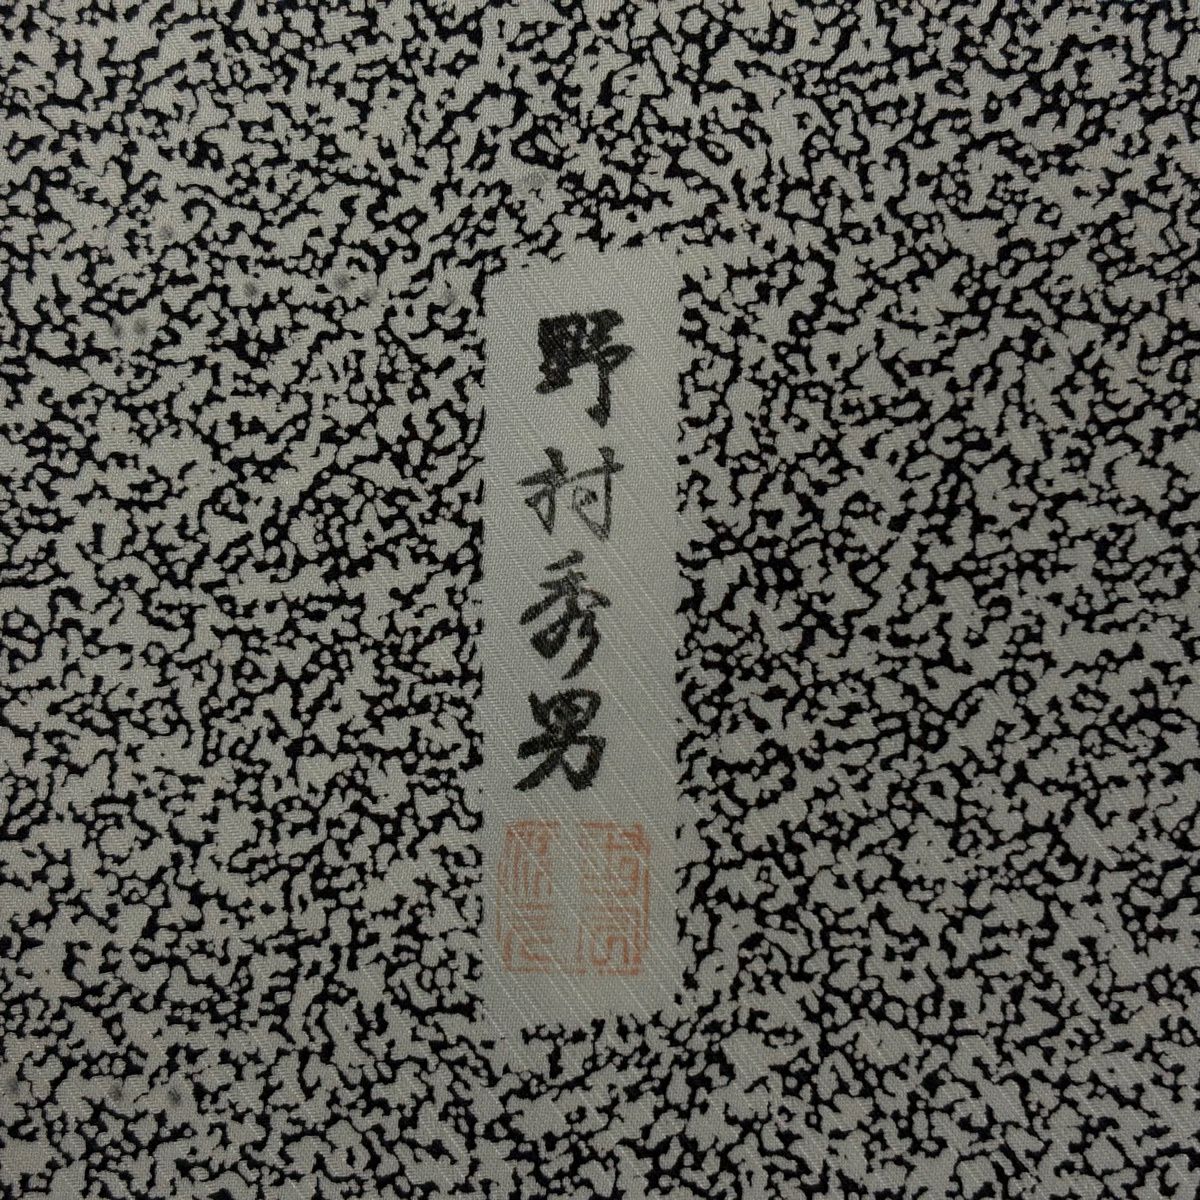 野村秀男